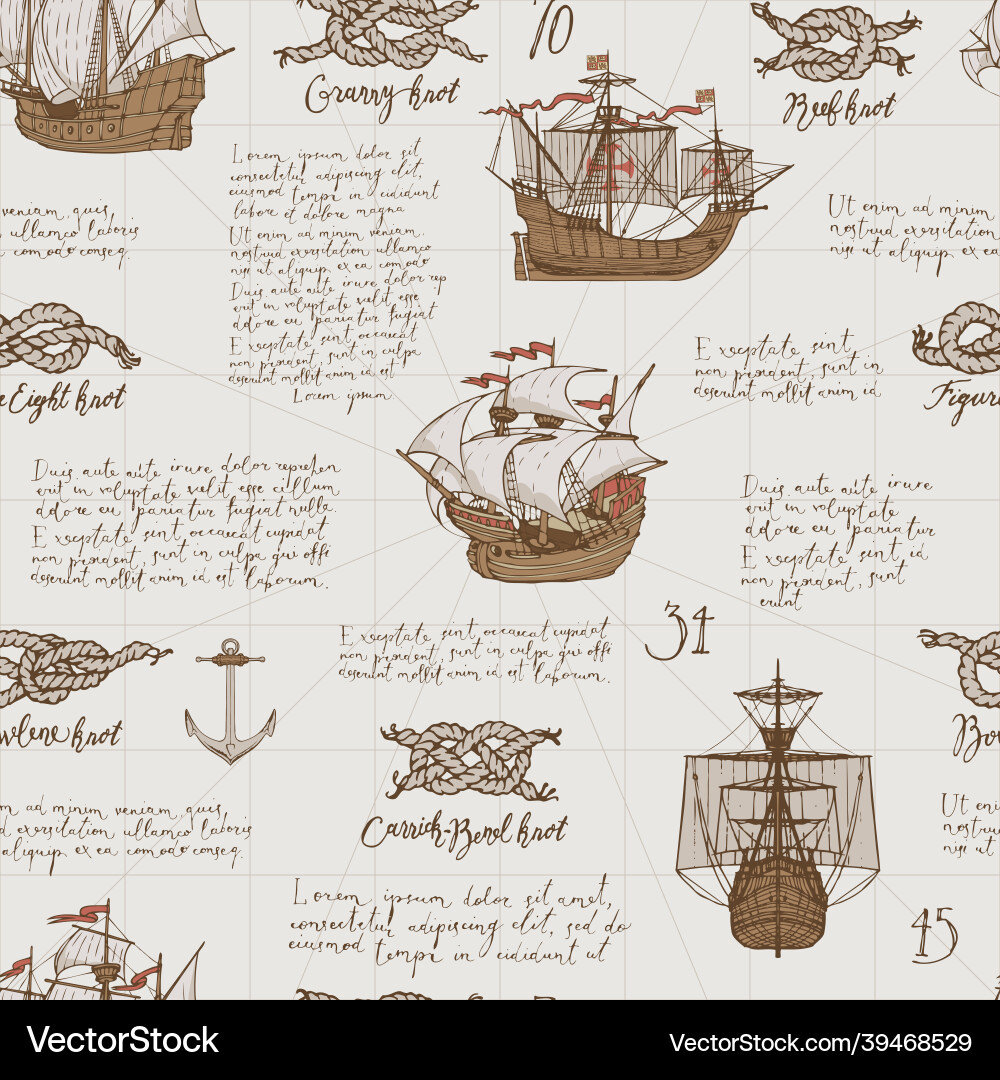 10
Granny knot
Reef knot
Lorem ipsum dolor sit
consectetur adipiscing elit,
eiusmod tempr in cididunt
labore et dolore magna
Ut enim ad minim veniam.
nostrud exersitation ullamco
nisi ut aliquip ex ea comodo
Duis aute aute irure dolor rep
erit in voluptate velit esse
ddore eu pariatur fugiat
Exceptate sint, occaecat
non proident, sunt in culpa
deserunt mollit anim id est
Lorem ipsum
veniam, quis
ullamco laboris
comodo conseq.
Ut enim ad minim
nostrud exersitation
nisi ut aliquip ex ea
Exceptate sint
non proident, sunt in
deserunt mollit anim id
e Eight knot
Figur
Duis aute aute irure dolor reprehen
erit in voluptate velit esse cillum
ddore eu pariatur fugiat nulla.
Exceptate sint, occaecat cupidat
non proident, sunt in culpa qui offi
deserunt mollit anim id est laborum.
Duis aute aute irure
erit in voluptate
ddore eu pariatur
Exceptate sint, id
non proident, sunt
erunt
Exceptate sint, occaecat cupidat
non proident, sunt in culpa qui offi
deserunt mollit anim id est laborum.
34
wlene knot
Bo
Carrick-Bend knot
m ad minim veniam, quis
d exersitation ullamco laboris
aliquip ex ea comodo conseq.
Ut eni
nostru
nisi ut
Lorem ipsum dolor sit amet,
consectetur adipiscing elit, sed do
eiusmod tempr in cididunt ut
45
VectorStock
VectorStock.com/39468529